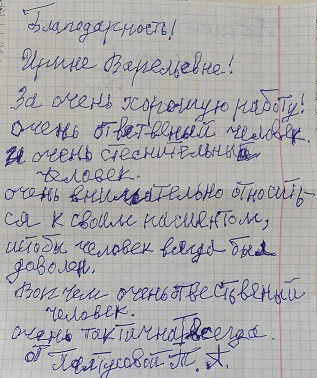 Благодарность!
Ирине Валерьевне!
За очень хорошую работу!
очень отвественый человек.
и очень стеснительный
человек.
очень внимательно относить-
ся к своим пасиентом,
чтобы человек всегда был
доволен.
Вопчем очень отвественый
человек.
очень тактична всегда.
от Т. А.